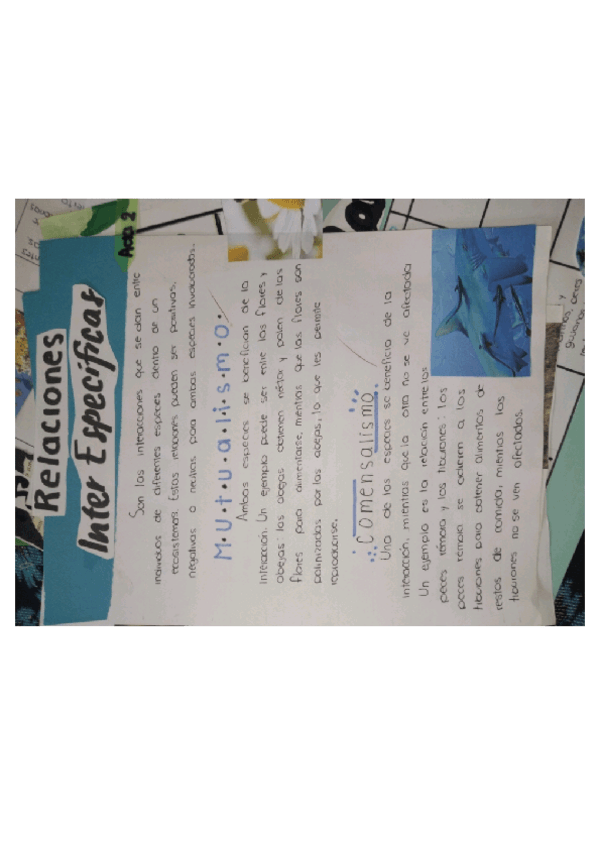 Relaciones
Inter Especificas
Acta 2
Son las interacciones que se dan entre
individuos de diferentes especies dentro de un
ecosistemas. Estas relaciones pueden ser positivas,
negativas o neutras para ambas especies involucradas.
M.U.t.U.a.l.i.s.m.o.
Ambas especies se benefician de la
interacción. Un ejemplo puede ser entre las flores y
abejas: las abejas obtienen néctar y polen de las
flores para alimentarse, mientras que las flores son
polinizadas por las avejas, lo que les permite
reproducirse.
Comensalismo
Una de las especies se beneficia de la
interacción, mientras que la otra no se ve afectada
Un ejemplo es la relación entre los
peces rémora y los tiburones: los
peces remora se adieren a los
tiburones para obtener alimentos de
restos de comida, mientras los
tiburones no se ven afectados.